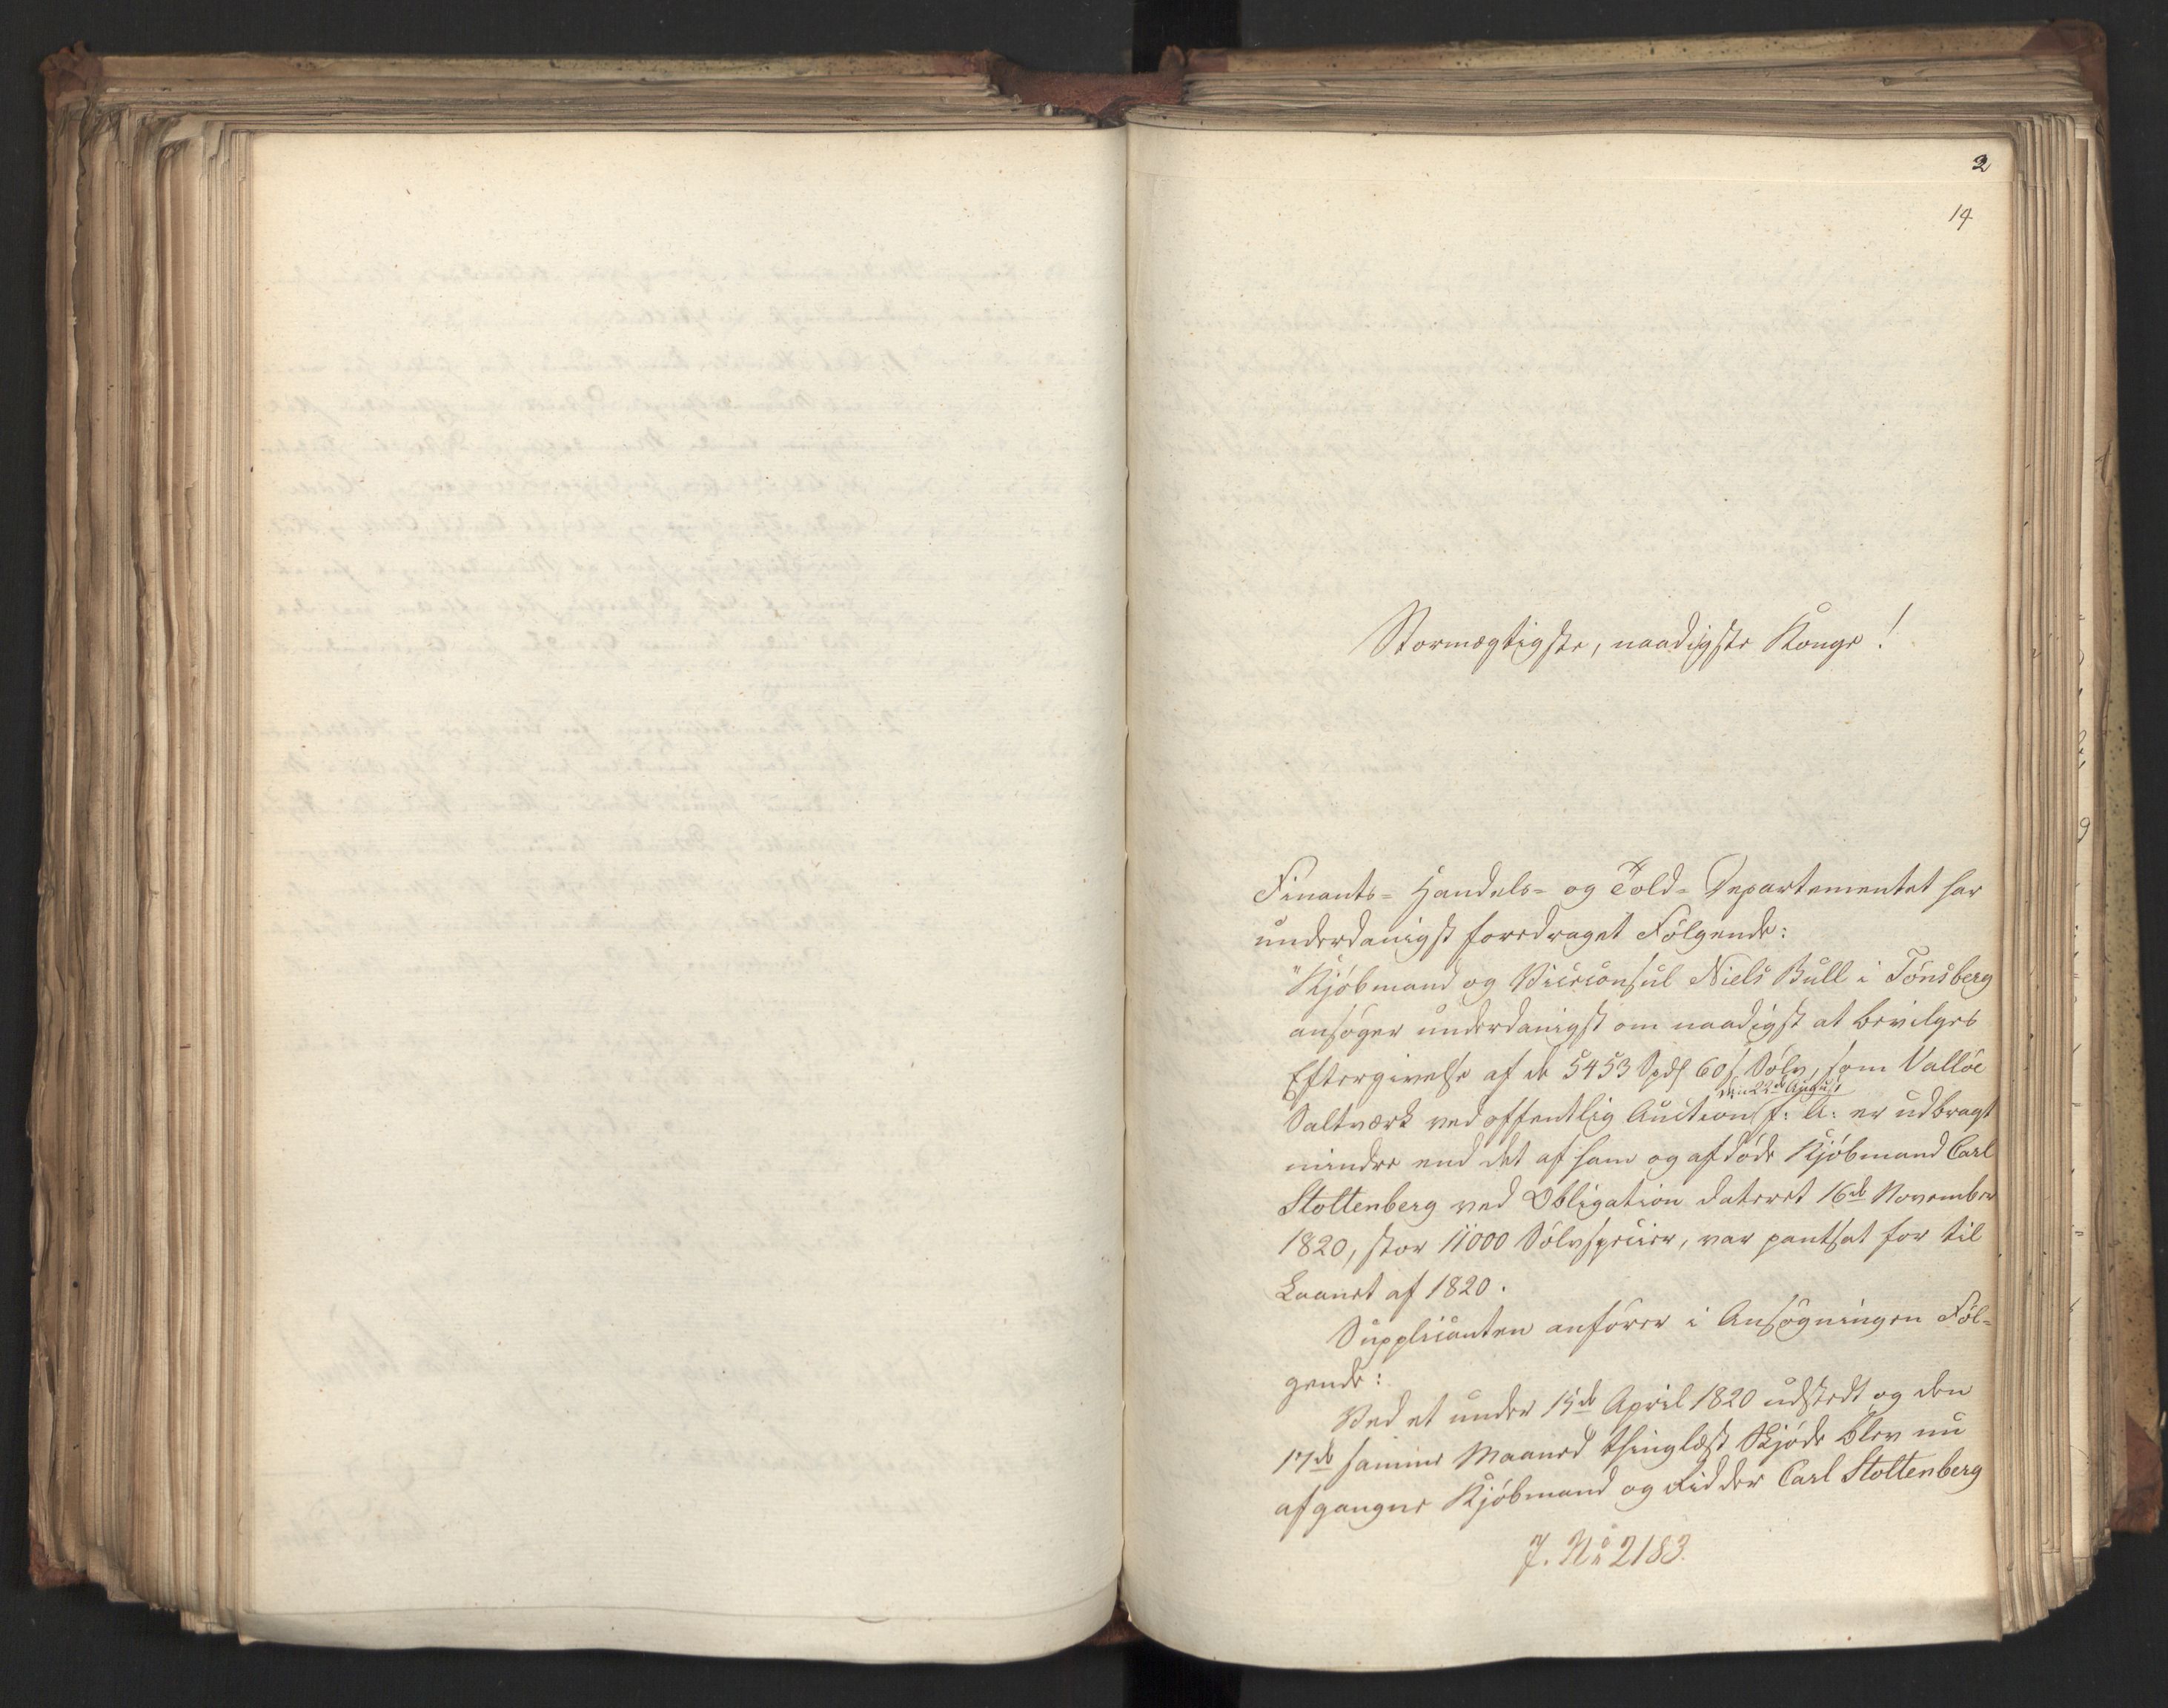 2
14
Stormægtigste, naadigste Konge!
Finants- Handels- og Told-Departementet har
underdanigst foredraget Følgende:
"Kjöbmand og Viceconsul Niels Bull i Tönsberg
ansøger underdanigst om naadigst at bevilges
Eftergivelse af de 5453 Spd 60 s Sölv, som Vallöe
den 22de August
Saltværk ved offentlig Auction f: A: er udbragt
mindre end det af ham og afdöde Kjöbmand Carl
Stoltenberg ved Obligation dateret 16de November
1820, stor 11000 Sölvspecier, var pantsat for til
Laanet af 1820.
Supplicanten anförer i Ansögningen Föl-
gende:
Ved et under 15de April 1820 udstedt og den
17de samme Maaned thinglæst Skjöde blev nu
afgangne Kjöbmand og Ridder Carl Stoltenberg
J. No 2183.